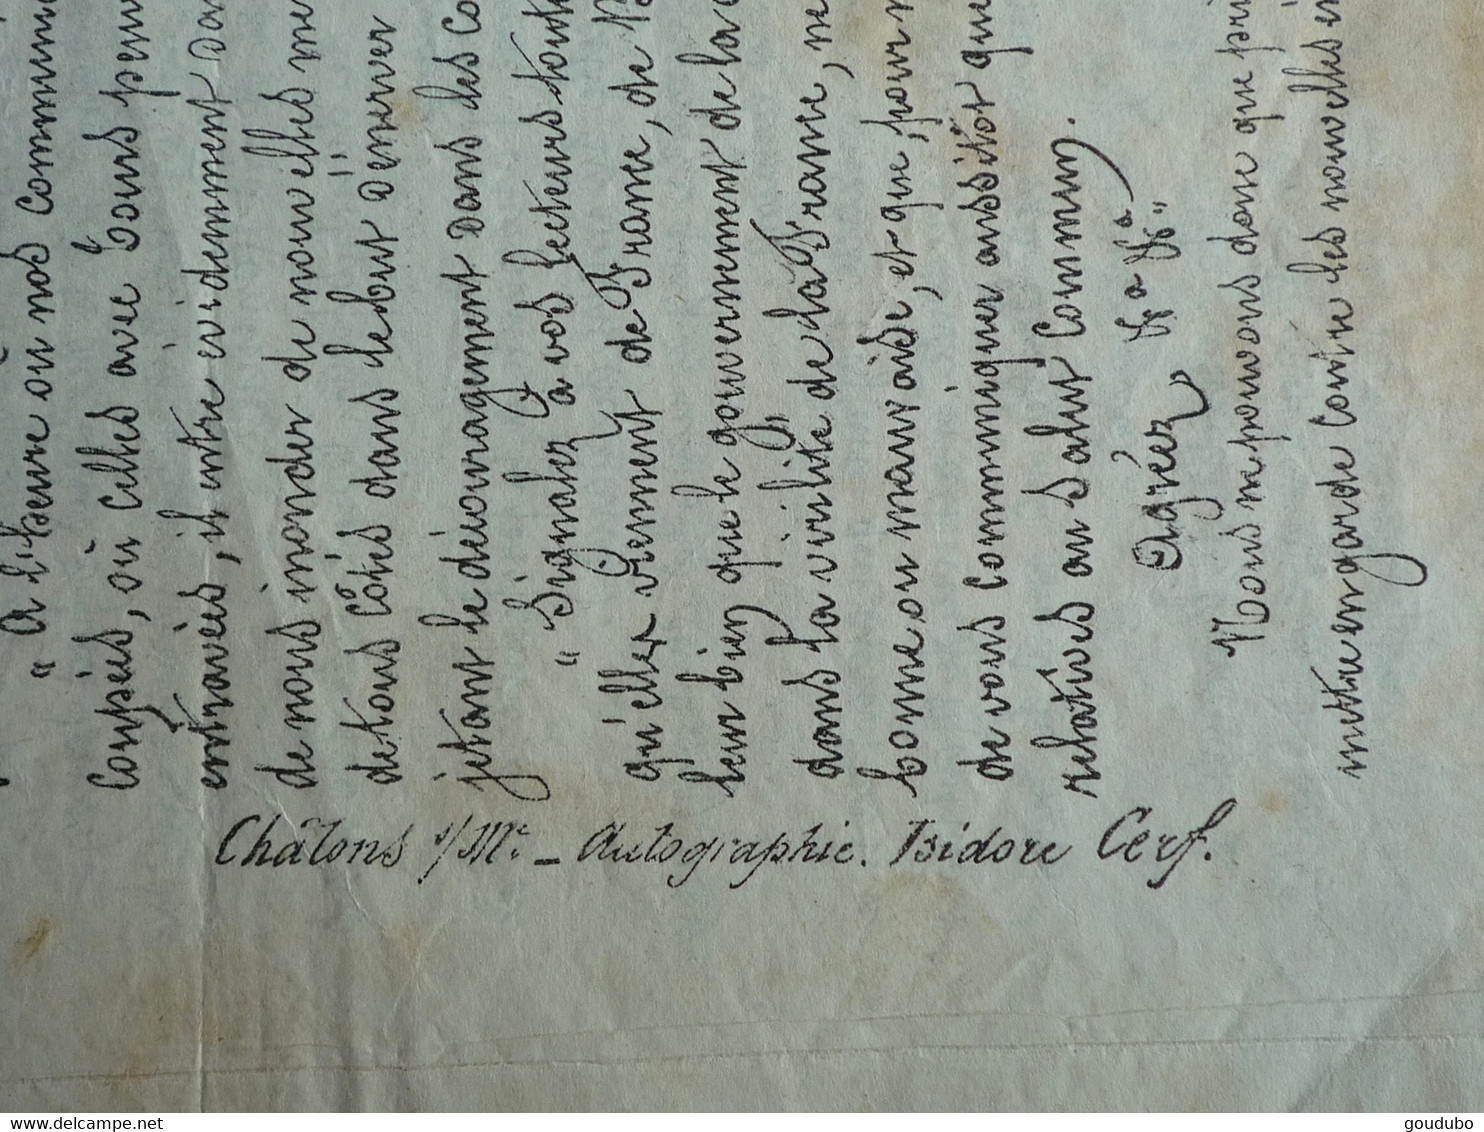 " A l'heure où nos commun
coupées, où celles avec Tours peuv
entravées, il entre évidemment da
de nous inonder de nouvelles me
de tous côtés dans le but d'énerver
jetant le découragement dans les co
" Signalez à vos lecteurs toute
qu'elles viennent de France, de B
leur bien que le gouvernement de la d
dans la virilité de la France, ne
bonne ou mauvaise, et que, pour n
de vous communiquer aussitôt que
relatives au salut commun.
Agréez
Nous ne pouvons donc que pri
mettre en garde contre les nouvelles en
Châlons s/Mne – Autographie. Isidore Cerf.
www.delcampe.net
goudubo